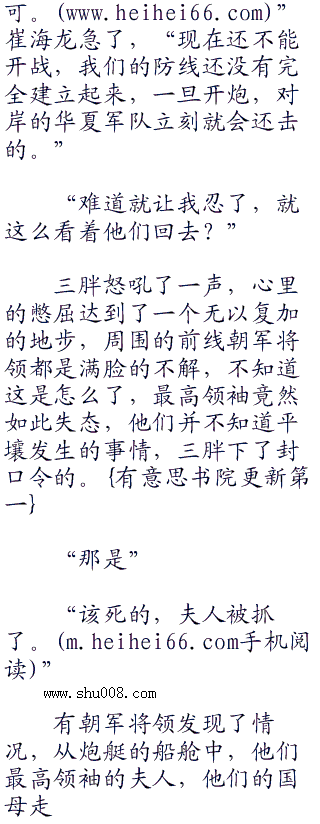 可。(www.heihei66.com)”
崔海龙急了，“现在还不能
开战，我们的防线还没有完
全建立起来，一旦开炮，对
岸的华夏军队立刻就会还击
的。”
“难道就让我忍了，就
这么看着他们回去？”
三胖怒吼了一声，心里
的憋屈达到了一个无以复加
的地步，周围的前线朝军将
领都是满脸的不解，不知道
这是怎么了，最高领袖竟然
如此失态，他们并不知道平
壤发生的事情，三胖下了封
口令的。{有意思书院更新第
一}
“那是”
“该死的，夫人被抓
了。(m.heihei66.com手机阅
读)”
www.shu008.com
有朝军将领发现了情
况，从炮艇的船舱中，他们
最高领袖的夫人，他们的国
母走